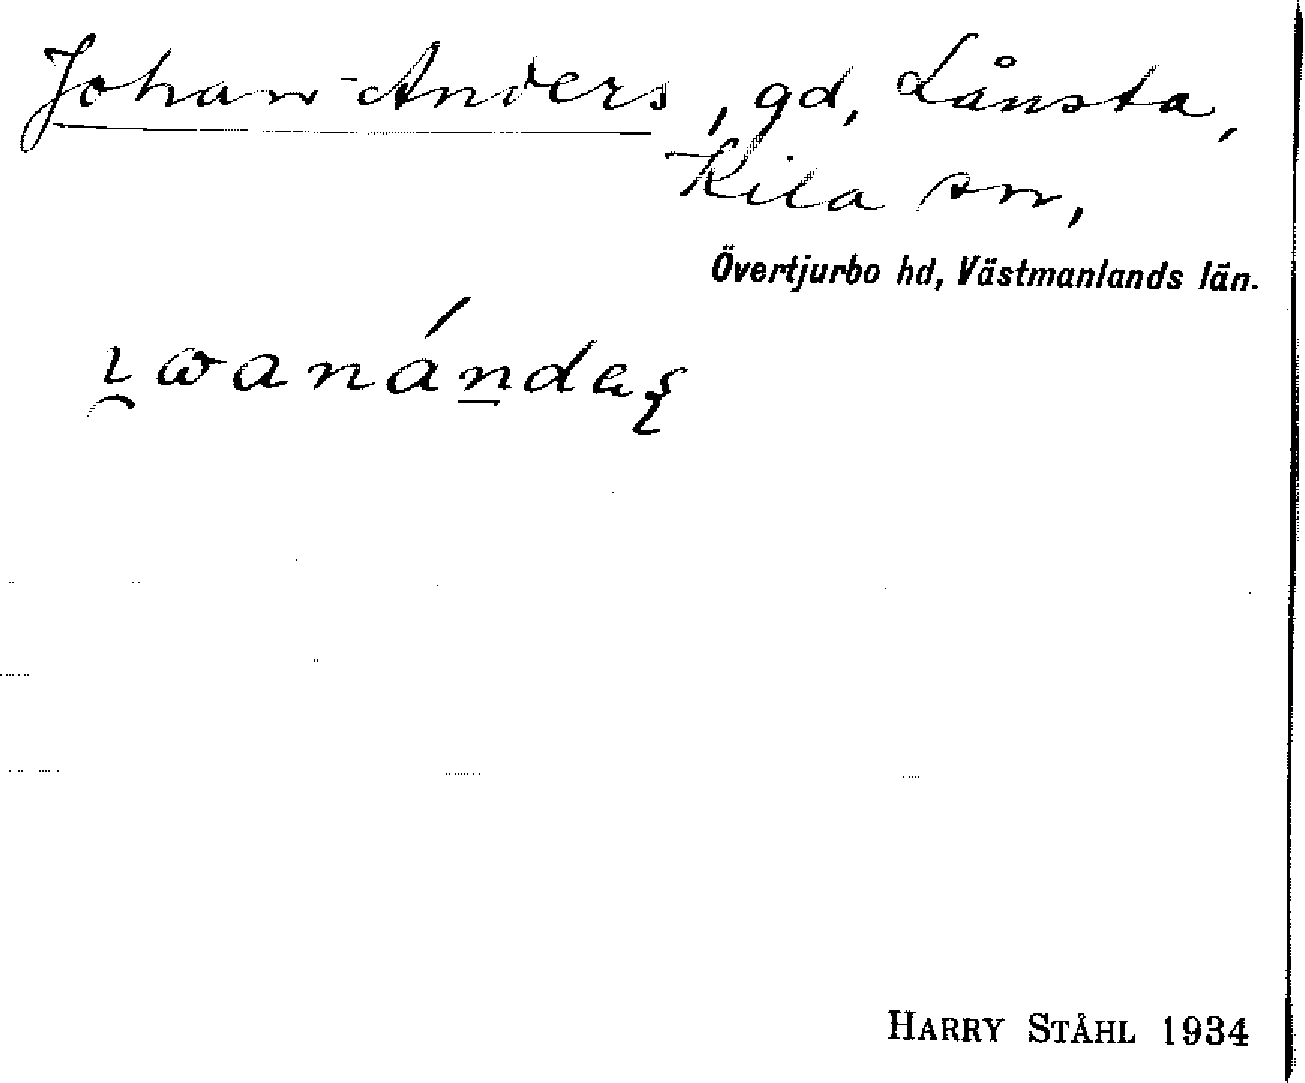 Johan-Anders, gd, Lånsta,
Kila sn,
Övertjurbo hd, Västmanlands län.
HARRY STÅHL 1934